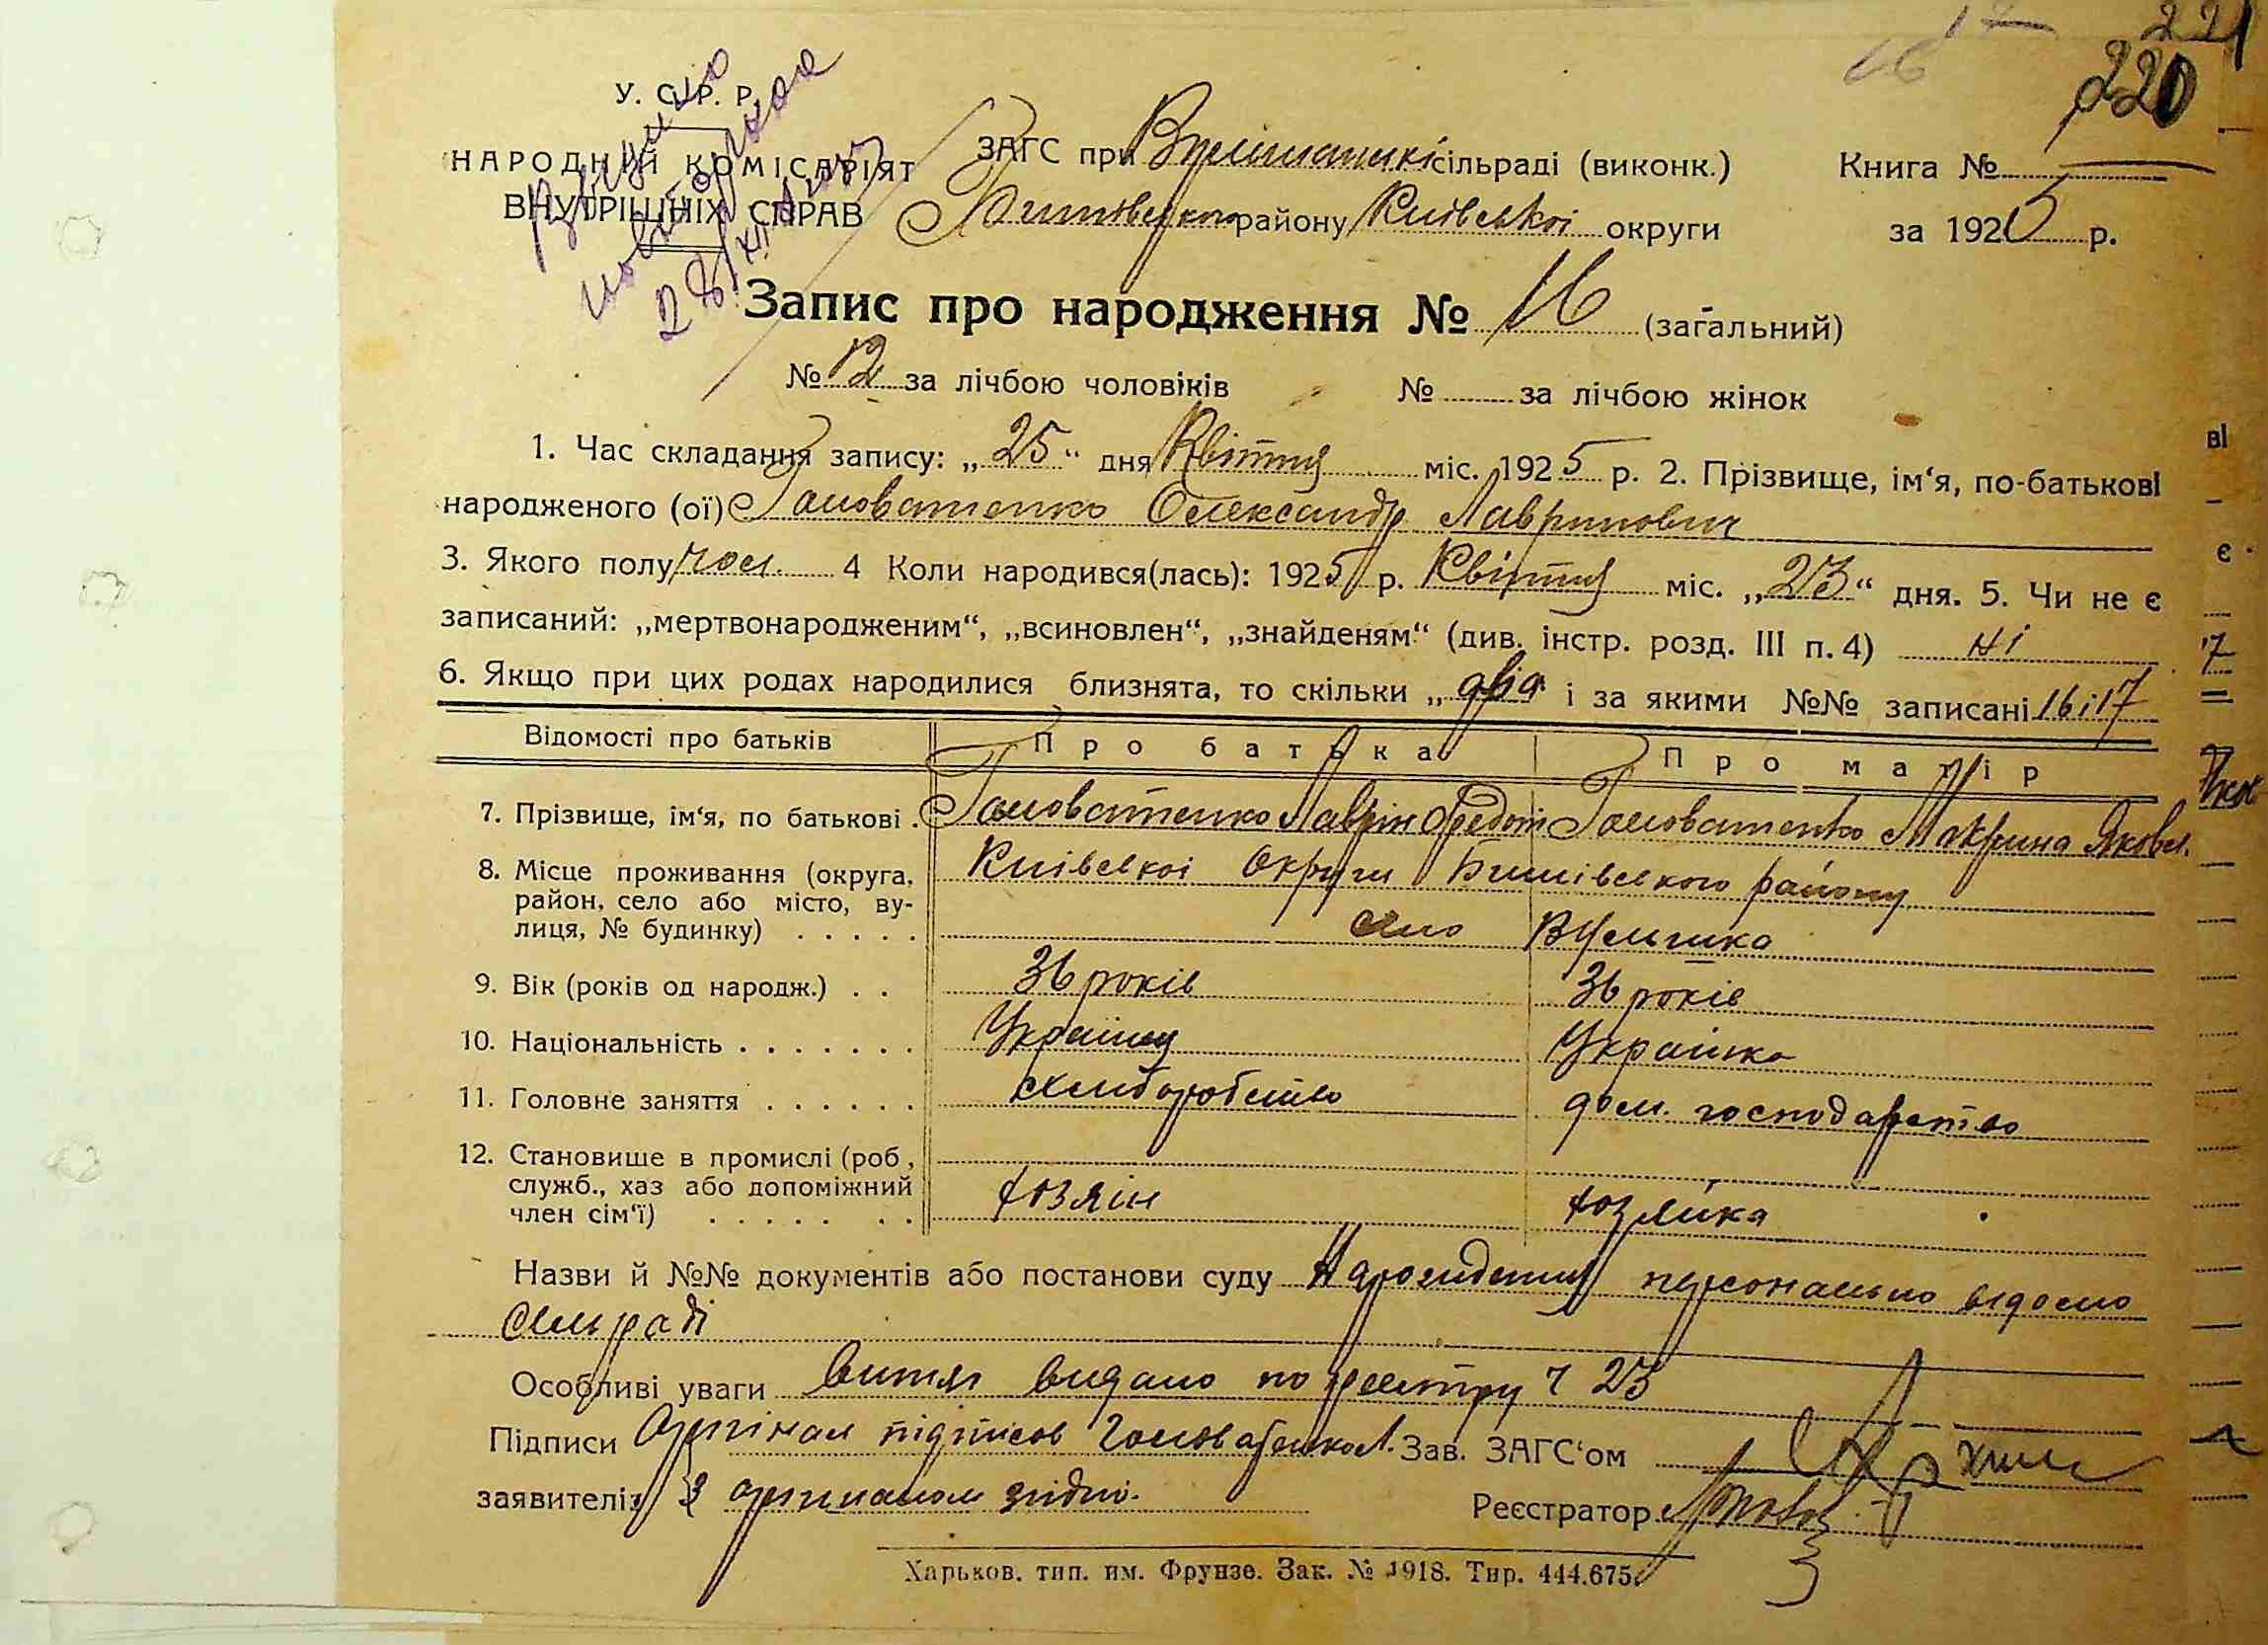 221
220
У. С. Р. Р.
НАРОДНІЙ КОМІСАРІЯТ
ВНУТРІШНІХ СПРАВ
ЗАГС при сільраді (виконк.)
Книга №
району Київської округи
за 1925 р.
Запис про народження № 16 (загальний)
№ 12 за лічбою чоловіків № за лічбою жінок
1. Час складання запису: „ 25 “ дня Квітня міс. 1925 р. 2. Прізвище, ім‘я, по-батькові
народженого (ої) Головатенко Олександр Лавринович
3. Якого полу чол. 4 Коли народився(лась): 1925 р. Квітня міс. „ 23 “ дня. 5. Чи не є
записаний: „мертвонародженим“, „всиновлен“, „знайденям“ (див. інстр. розд. III п. 4) ні
6. Якщо при цих родах народилися близнята, то скільки „ два і за якими №№ записані 16 і 17
Відомості про батьків Про батька Про матір
7. Прізвище, ім‘я, по батькові . Головатенко Лаврін Федот Головатенко Макрина Яковл.
8. Місце проживання (округа, Київської Округи району
район, село або місто, ву-
лиця, № будинку) . . . . . село
9. Вік (років од народж.) . . 36 років 36 років
10. Національність . . . . . . . Українец Українка
11. Головне заняття . . . . . . хлиборобство дом. господарство
12. Становище в промислі (роб,
служб., хаз або допоміжний
член сім‘ї) . . . . . . . хозяін хозяйка
Назви й №№ документів або постанови суду персонально відомо
Сельраді
Особливі уваги витяг видано по реестру ч 23
Підписи Орігінал підписов Головатенко Л. Зав. ЗАГС‘ом
заявителів З орігиналом згідно. Реєстратор
Харьков. тип. им. Фрунзе. Зак. № 1918. Тир. 444.675.